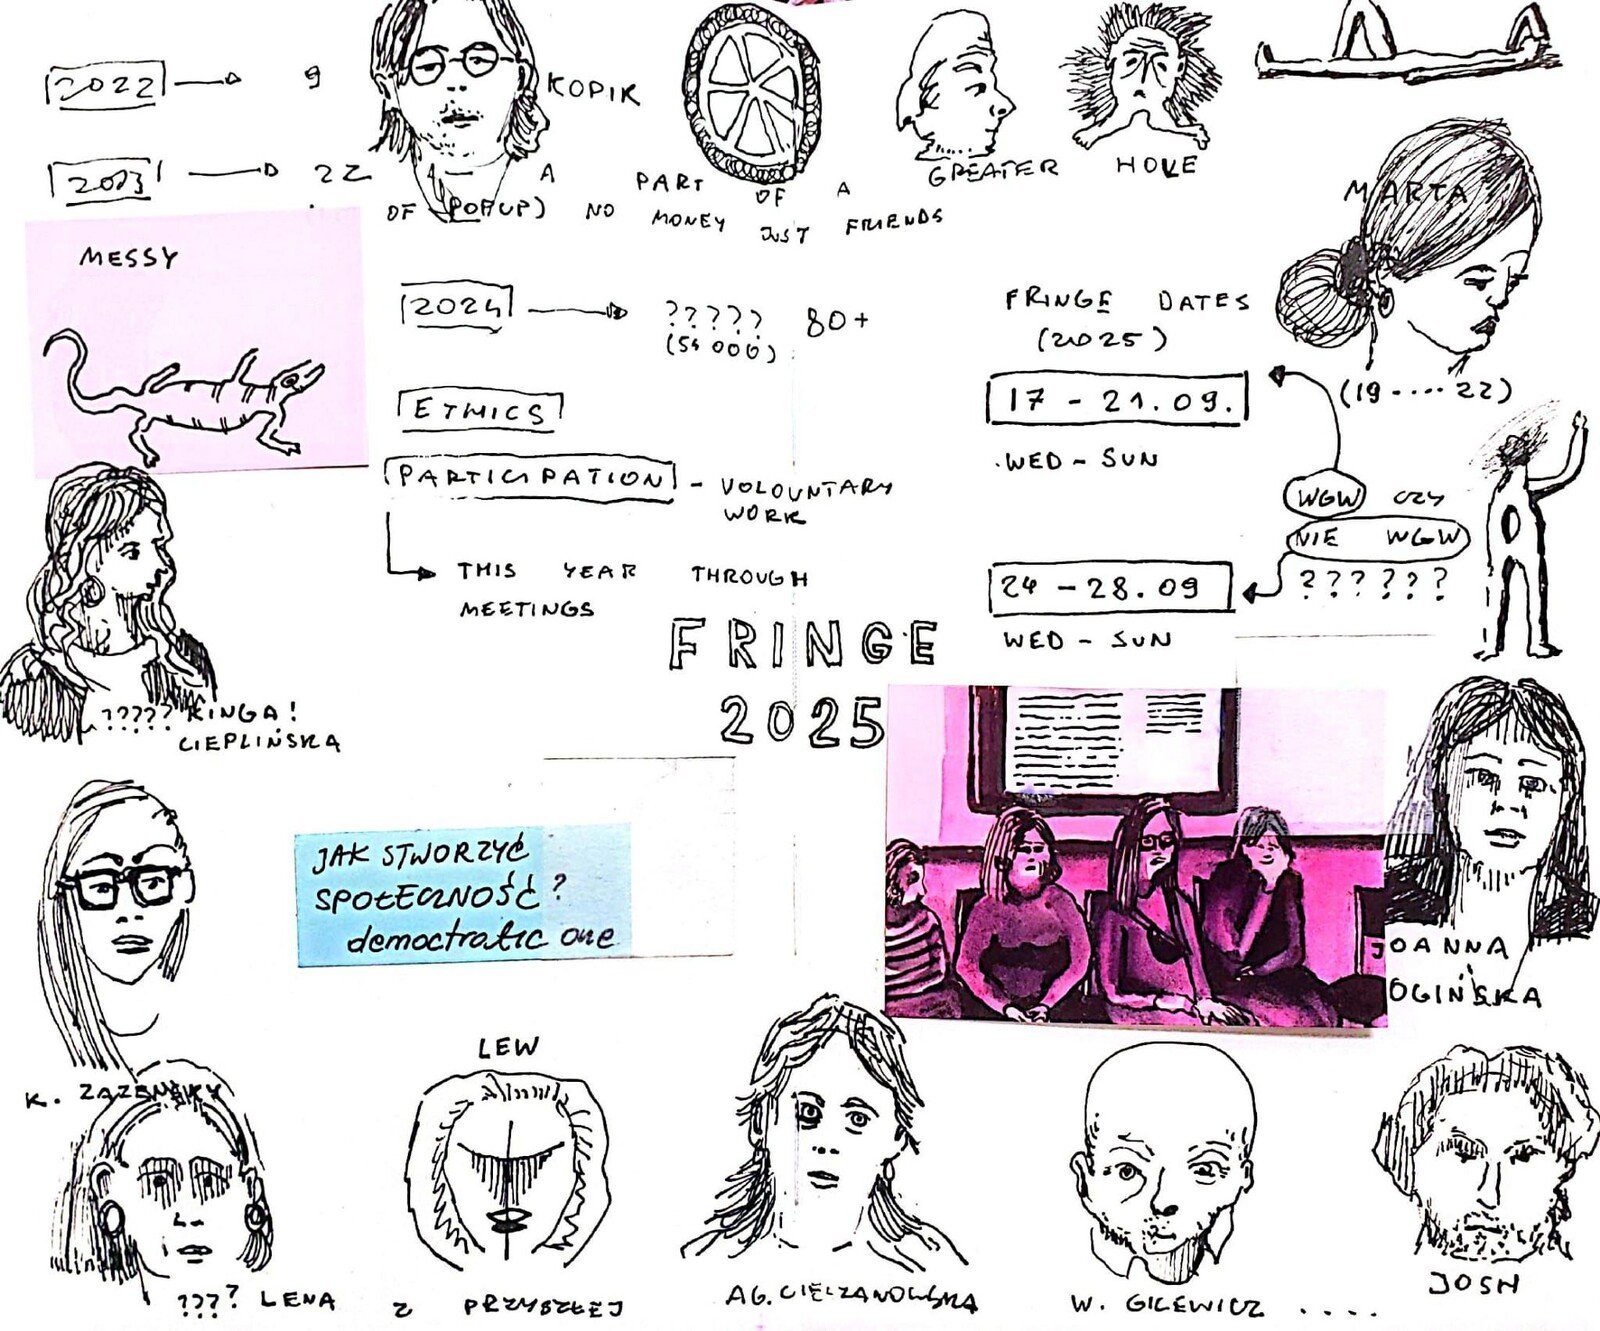 2022 → 9
KOPIK
2023 → 22 A PART OF A
OF (POPUP) NO MONEY JUST FRIENDS
GREATER
HOLE
MARTA
(19 .... 22)
MESSY
2024 → ????? 80+
(54 000)
ETHICS
PARTICIPATION - VOLOUNTARY
WORK
THIS YEAR THROUGH
MEETINGS
FRINGE DATES
(2025)
17 - 21.09.
WED - SUN
WGW CZY
NIE WGW
??????
24 - 28.09
WED - SUN
FRINGE
2025
????? KINGA!
CIEPLIŃSKA
JAK STWORZYĆ
SPOŁECZNOŚĆ?
democtratic one
JOANNA
OGIŃSKA
K.
LEW
??? LENA
Z PRZYSZŁEJ
AG.
W. GILEWICZ ....
JOSH